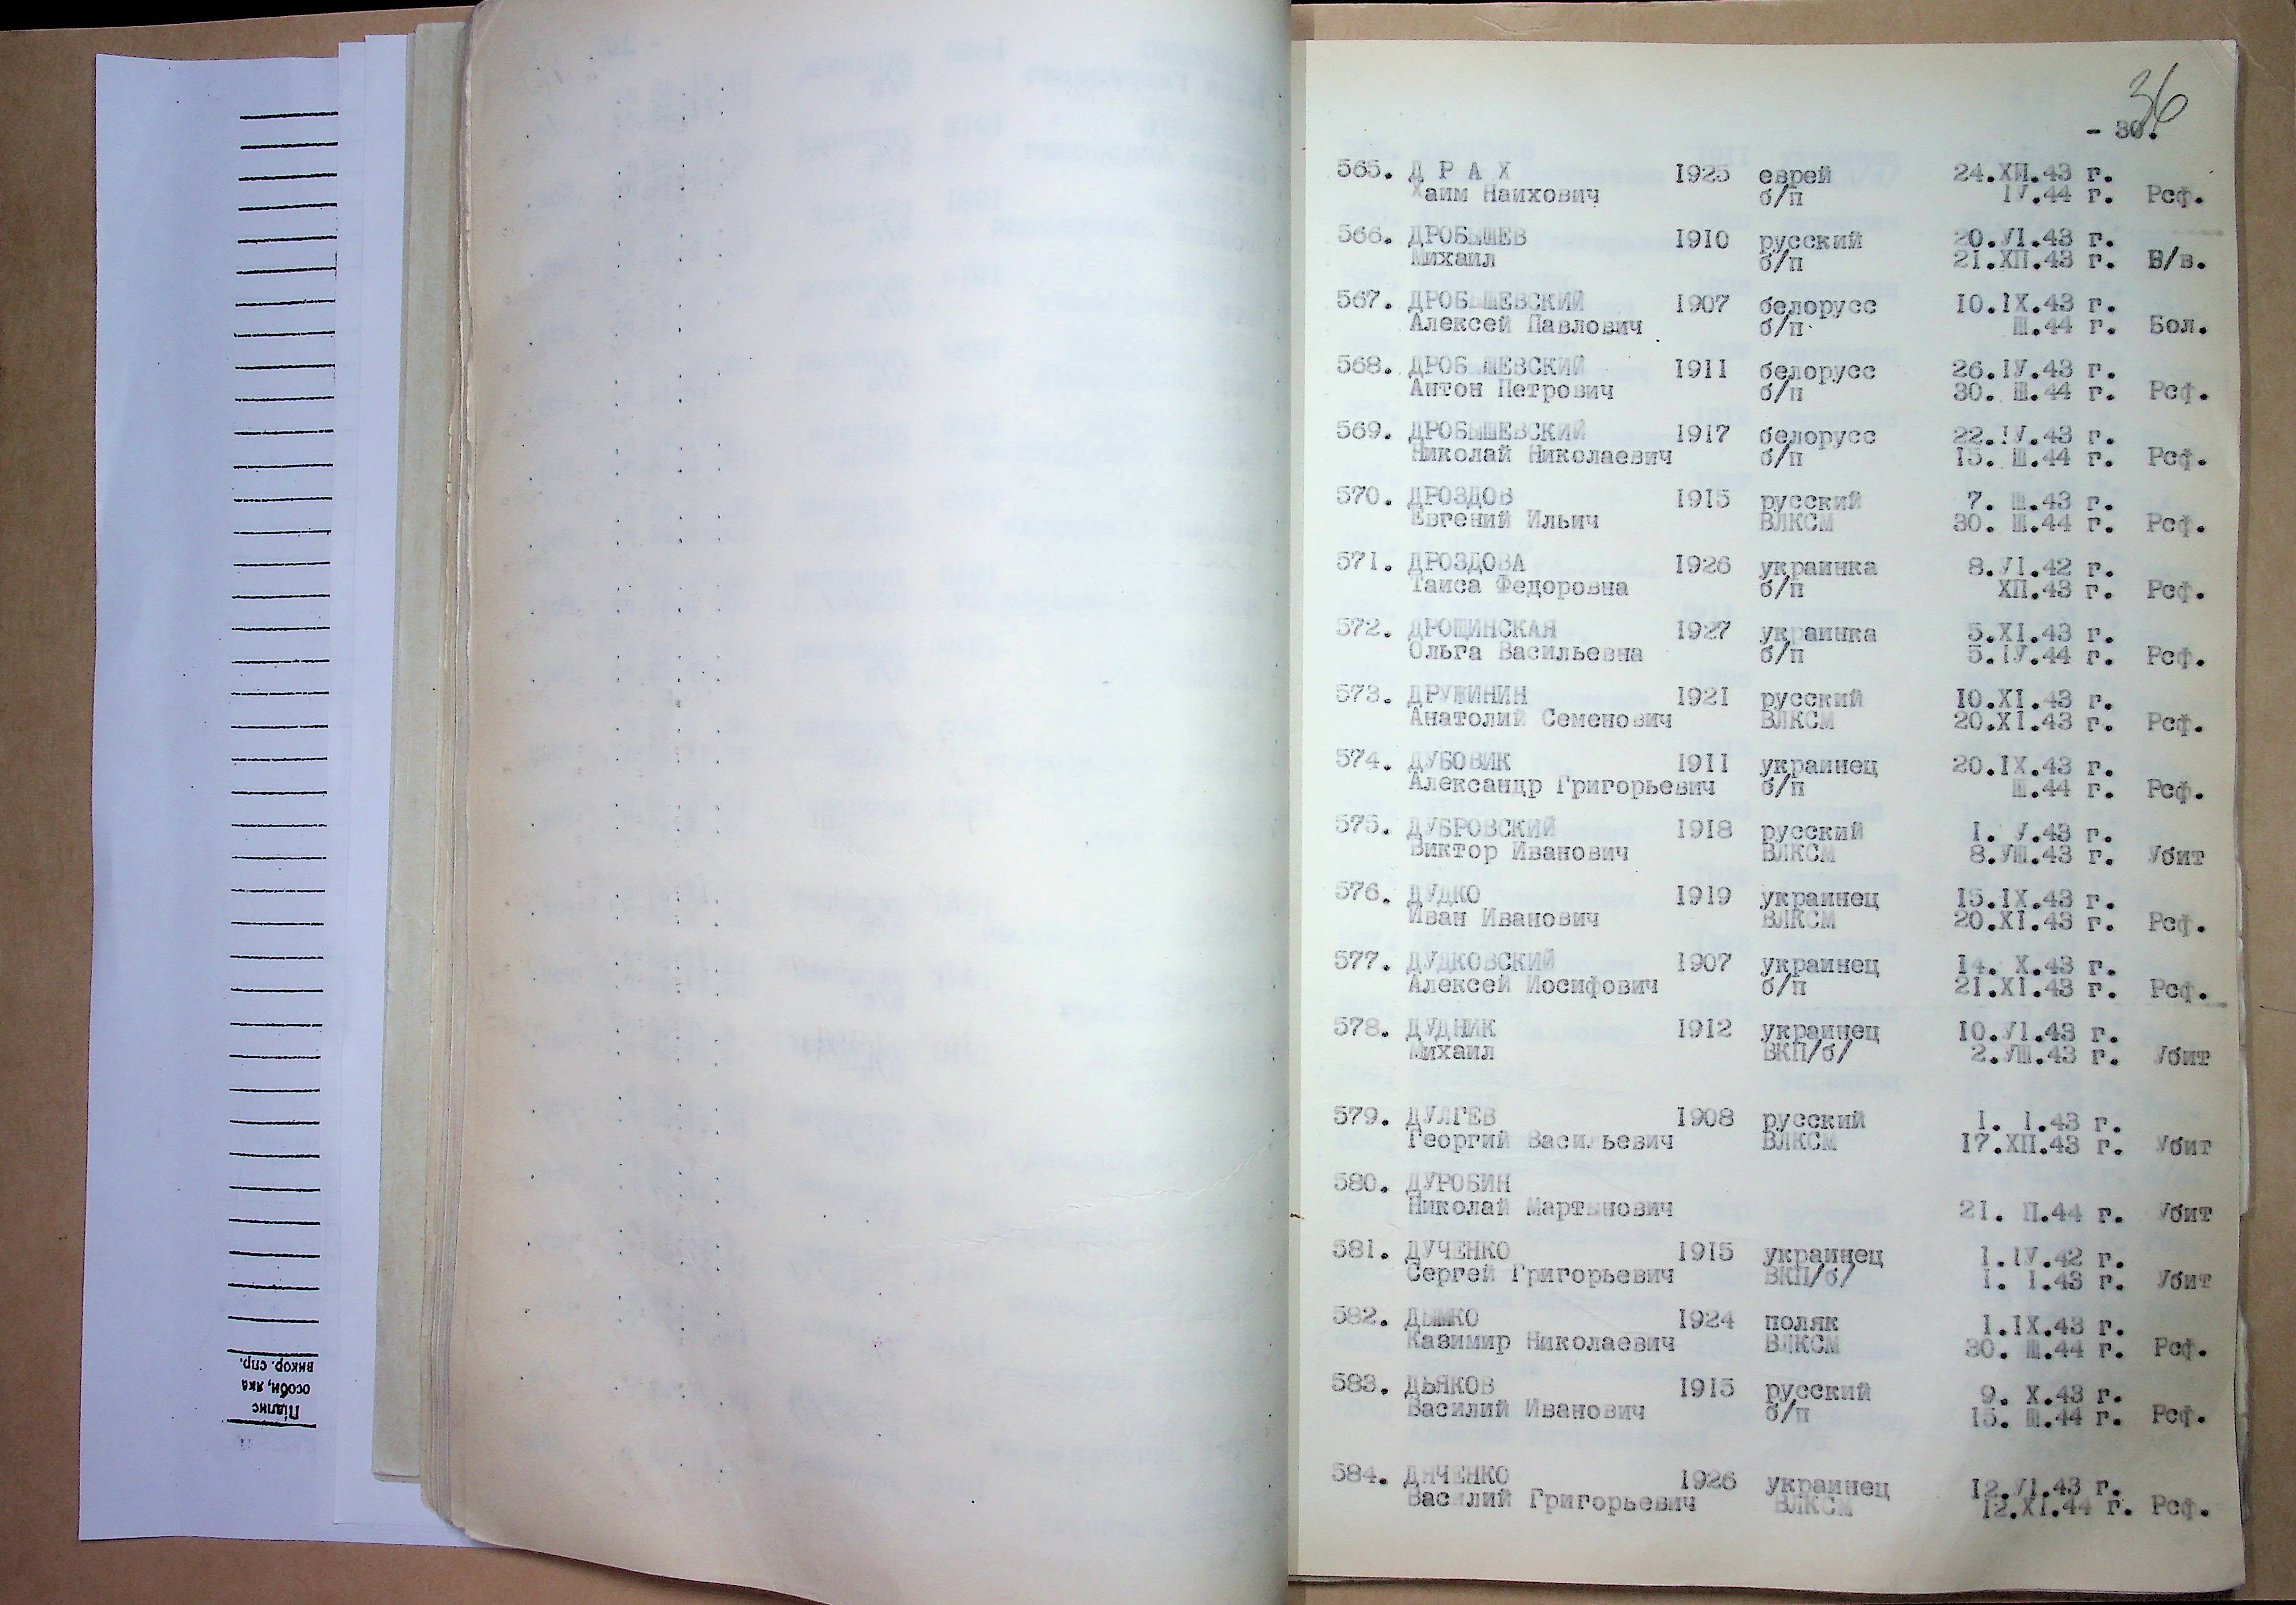 36
- 30.
565. Д Р А Х 1925 еврей 24.ХП.43 г.
Хаим Наихович б/п IУ.44 г. Рсф.
566. ДРОБЫШЕВ 1910 русский 20.УI.43 г.
Михаил б/п 21.ХП.43 г. В/в.
567. ДРОБЫШЕВСКИЙ 1907 белорусс 10.IХ.43 г.
Алексей Павлович б/п Ш.44 г. Бол.
568. ДРОБ ШЕВСКИЙ 1911 белорусс 26.IУ.43 г.
Антон Петрович б/п 30. Ш.44 г. Рсф.
569. ДРОБЫШЕВСКИЙ 1917 белорусс 22.IУ.43 г.
Николай Николаевич б/п 15. Ш.44 г. Рсф.
570. ДРОЗДОВ 1915 русский 7. Ш.43 г.
Евгений Ильич ВЛКСМ 30. Ш.44 г. Рсф.
571. ДРОЗДОВА 1926 украинка 8.УI.42 г.
Таиса Федоровна б/п ХП.43 г. Рсф.
572. ДРОЩИНСКАЯ 1927 украинка 5.XI.43 г.
Ольга Васильевна б/п 5.IУ.44 г. Рсф.
573. ДРУЖИНИН 1921 русский 10.XI.43 г.
Анатолий Семенович ВЛКСМ 20.XI.43 г. Рсф.
574. ДУБОВИК 1911 украинец 20.IХ.43 г.
Александр Григорьевич б/п Ш.44 г. Рсф.
575. ДУБРОВСКИЙ 1918 русский 1. У.43 г.
Виктор Иванович ВЛКСМ 8.УШ.43 г. Убит
576. ДУДКО 1919 украинец 15.IХ.43 г.
Иван Иванович ВЛКСМ 20.XI.43 г. Рсф.
577. ДУДКОВСКИЙ 1907 украинец 14. Х.43 г.
Алексей Иосифович б/п 21.XI.43 г. Рсф.
578. ДУДНИК 1912 украинец 10.УI.43 г.
Михаил ВКП/б/ 2.УШ.43 г. Убит
579. ДУЛГЕВ 1908 русский 1. I.43 г.
Георгий Васильевич ВЛКСМ 17.ХП.43 г. Убит
580. ДУРОБИН
Николай Мартынович 21. П.44 г. Убит
581. ДУЧЕНКО 1915 украинец 1.IУ.42 г.
Сергей Григорьевич ВКП/б/ 1. I.43 г. Убит
582. ДЫМКО 1924 поляк 1.IХ.43 г.
Казимир Николаевич ВЛКСМ 30. Ш.44 г. Рсф.
583. ДЬЯКОВ 1915 русский 9. Х.43 г.
Василий Иванович б/п 15. Ш.44 г. Рсф.
584. ДЯЧЕНКО 1926 украинец 12.УI.43 г.
Василий Григорьевич ВЛКСМ 12.XI.44 г. Рсф.
Підпис
особи, яка
викор. спр.